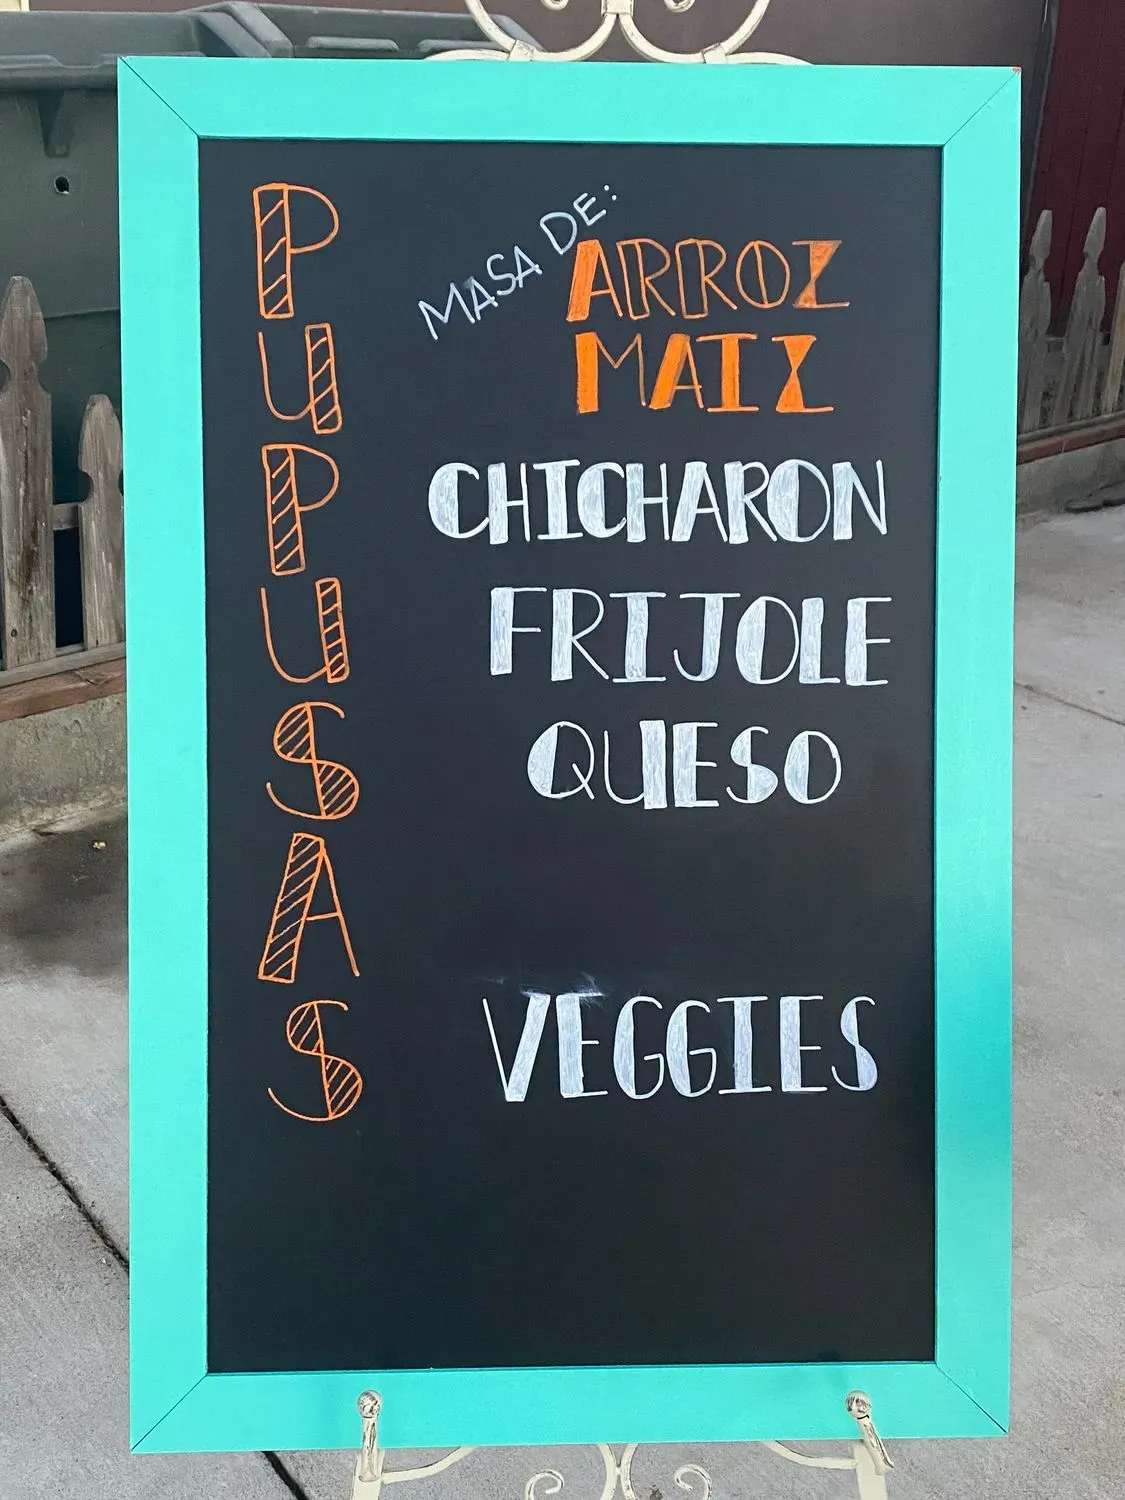 PUPUSAS
MASA DE:
ARROZ
MAIZ
CHICHARON
FRIJOLE
QUESO
VEGGIES